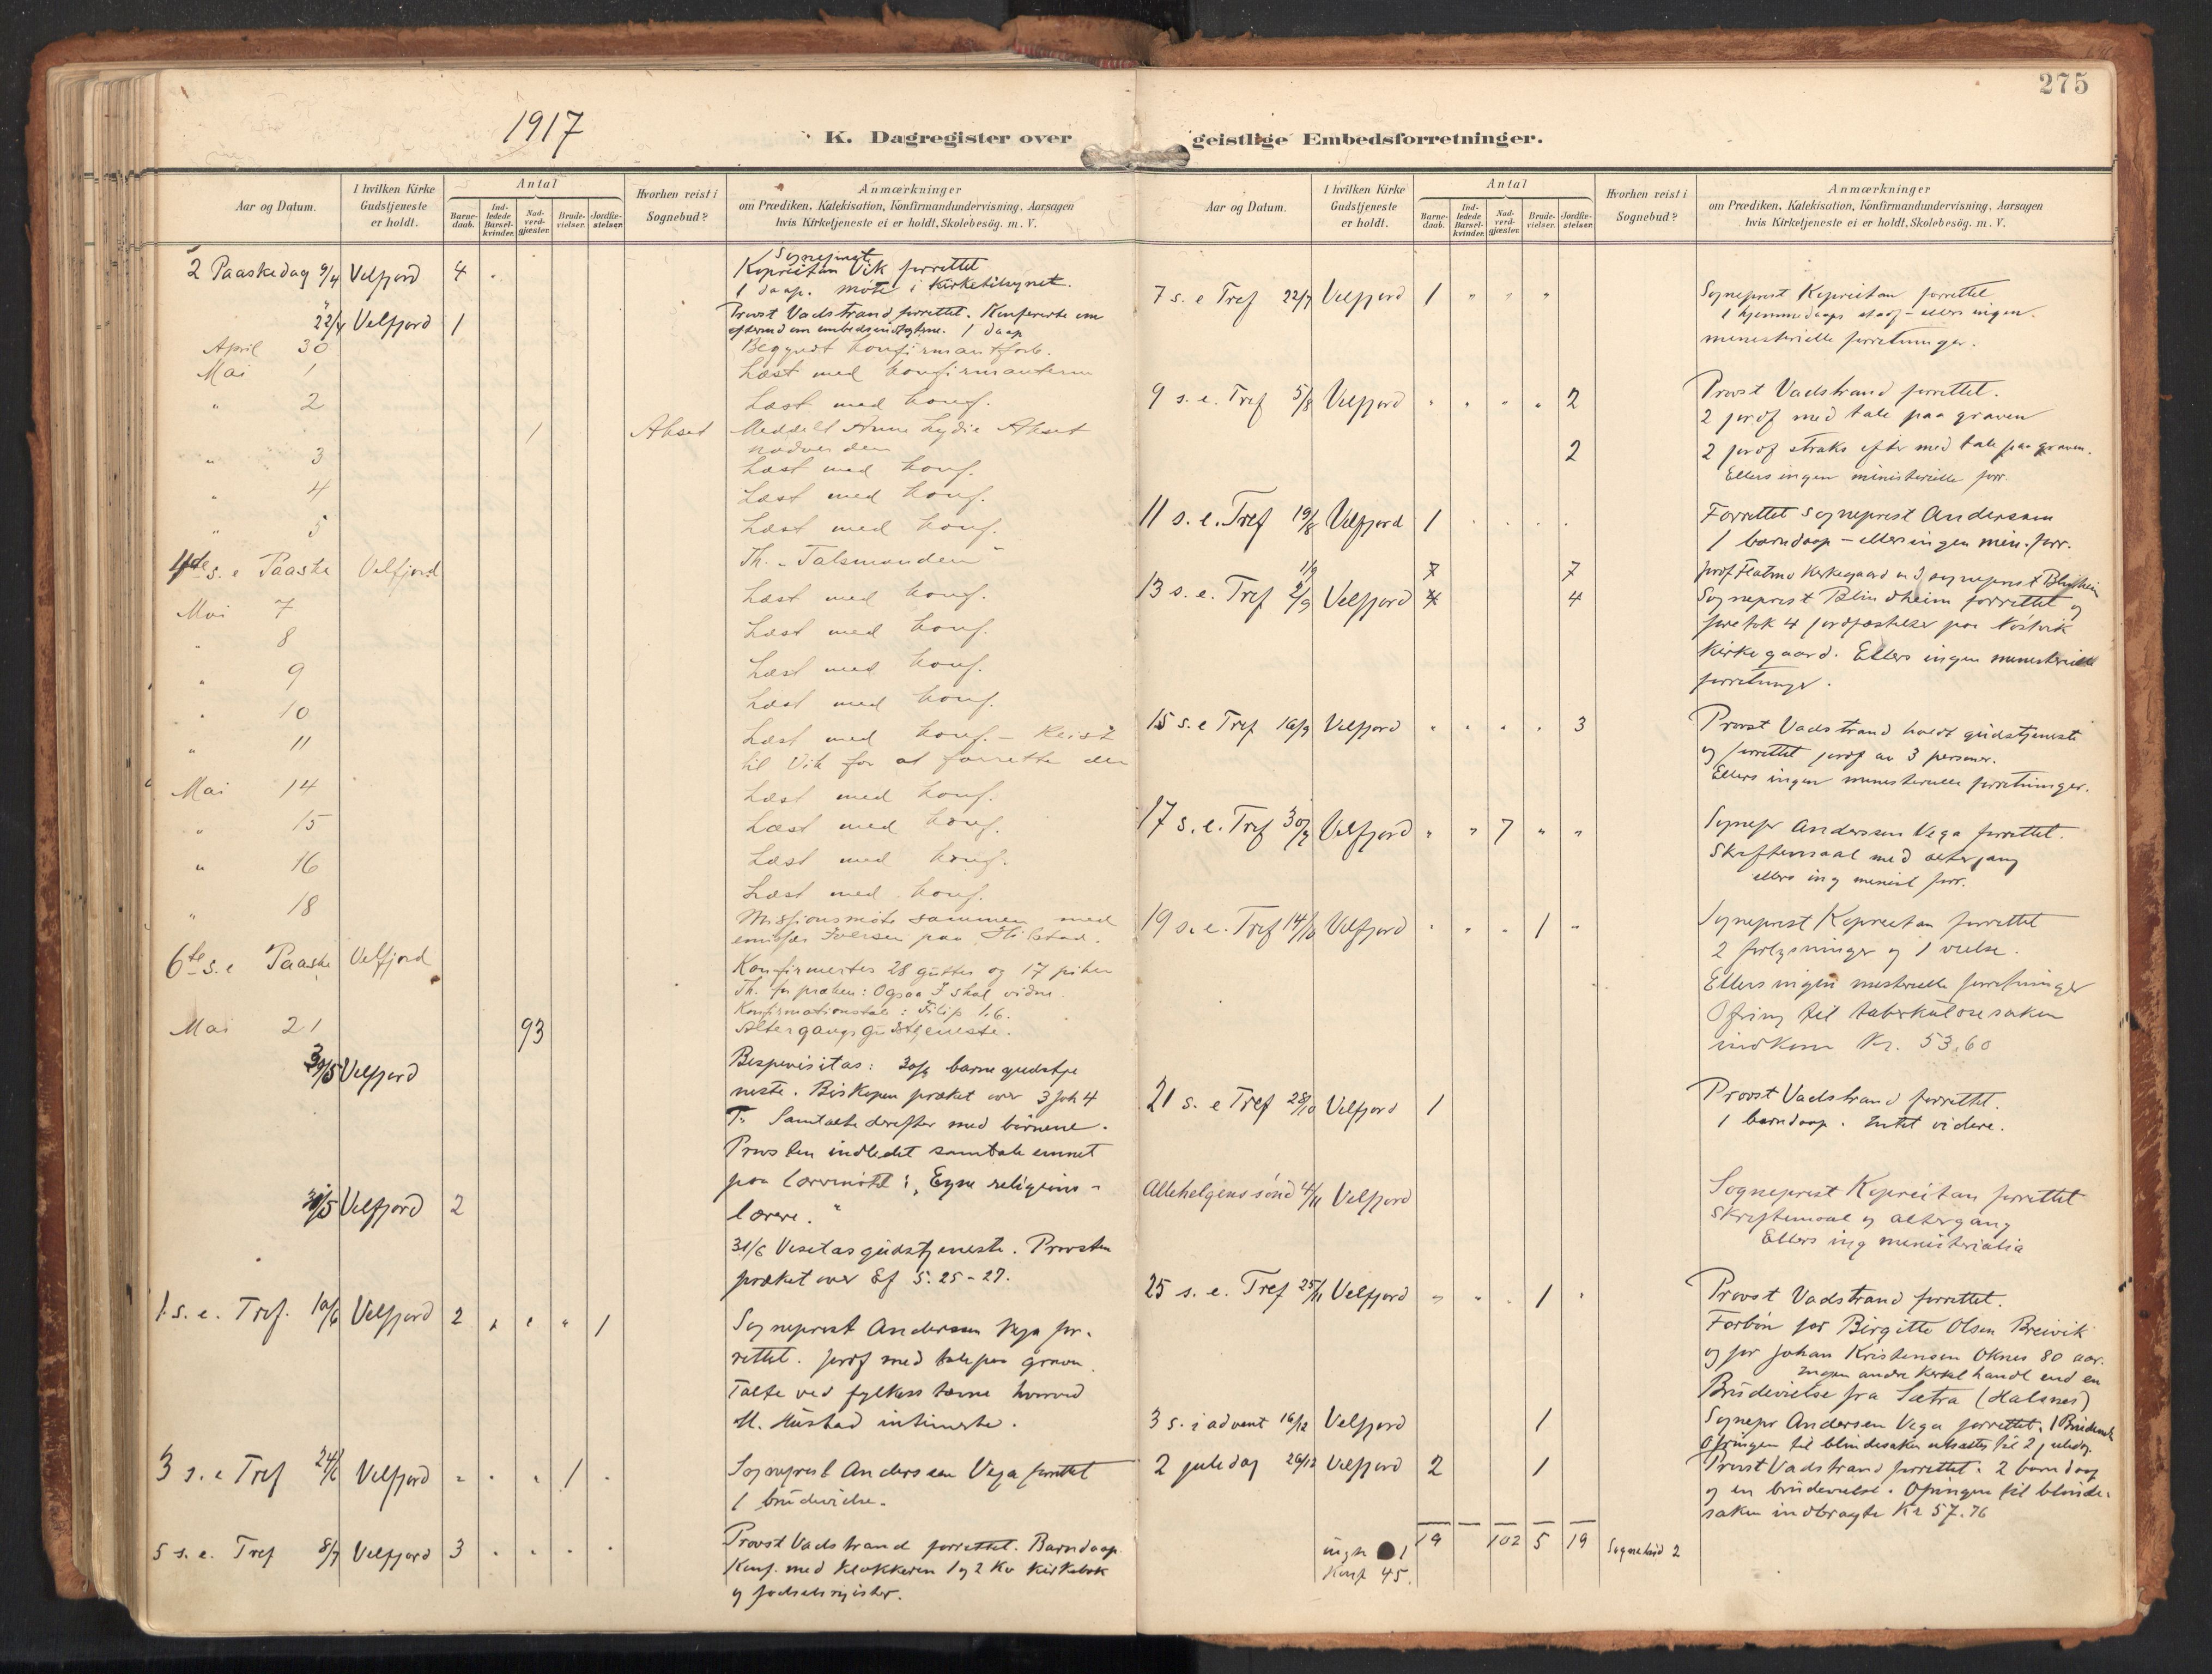 275
1917
K. Dagregister over geistlige Embedsforretninger.
Aar og Datum.
I hvilken Kirke Gudstjeneste er holdt.
Antal
Barne-daab.
Ind-ledede Barsel-kvinder.
Nad-verd-gjæster.
Brude-vielser.
Jordfæ-stelser.
Hvorhen reist i Sognebud?
Anmærkninger
om Prædiken, Katekisation, Konfirmandundervisning, Aarsagen
hvis Kirketjeneste ei er holdt, Skolebesög. m. V.
2 Paaskedag 9/4 Velfjord 4 Sogneprest
Kopreitan Vik forrettet
1 daap. møte i Kirketilsynet.
22/4 Velfjord 1 Provst Vadstrand forrettet. Konfererte om
1 daap
April 30 Begyndt konfirmantforb.
Mai 1 Læst med konfirmanterne
" 2 Læst med konf.
1 Akset Meddelt Anne Lydie Akset
nadverden
" 3 Læst med konf.
" 4 Læst med konf.
" 5 Læst med konf.
4de s. e Paaske Velfjord Th. "Talsmanden"
Mai 7 Læst med konf.
" 8 Læst med konf.
" 9 Læst med konf.
" 10 Læst med konf.
" 11 Læst med konf. - Reist
til Vik for at forrette der
Mai 14 Læst med konf.
" 15 Læst med konf.
" 16 Læst med konf.
" 18 Læst med konf.
Missionsmøte sammen med
emissær Iversen paa Hilstad.
6te s. e Paaske Velfjord Konfirmertes 28 gutter og 17 piker
Th. for præken: Ogsaa I skal vidne.
Konfirmationstale: Filip 1.6.
Mai 21 93 Altergangsgudstjeneste.
30/5 Velfjord Bispevisitas: 30/5 barnegudstje
neste. Biskopen præket over 3 Joh 4
Samtalte derefter med börnene.
Provsten indledet samtaleemnet
paa lærermöte: "Egne religions-
lærere."
31/5 Velfjord 2
31/6 Visitasgudstjeneste. Provsten
præket over Ef 5. 25-27.
1. s. e. Tref. 10/6 Velfjord 2 " " " 1 Sogneprest Anderssen Vega for-
rettet. Jordf med tale paa graven.
Talte ved fylkesstævne hvorved
M. Hustad intimerte.
3 s. e Tref 24/6 Velfjord " " " 1 " Sogneprest Anderssen Vega forrettet
1 brudevielse.
5 s. e. Tref 8/7 Velfjord 3 " " " " Provst Vadstrand forrettet. Barndaap
Konf. med klokkeren 1 og 2 Kv Kirkebok
og fødselsregister.
Aar og Datum.
I hvilken Kirke Gudstjeneste er holdt.
Antal
Barne-daab.
Ind-ledede Barsel-kvinder.
Nad-verd-gjæster.
Brude-vielser.
Jordfæ-stelser.
Hvorhen reist i Sognebud?
Anmærkninger
om Prædiken, Katekisation, Konfirmandundervisning, Aarsagen
hvis Kirketjeneste ei er holdt, Skolebesög. m. V.
7 s. e Tref 22/7 Velfjord 1 " " " Sogneprest Kopreitan forrettet
1 hjemmedaap - ellers ingen
menesterielle forretninger.
9 s. e. Tref 5/8 Velfjord " " " " 2 Provst Vadstrand forrettet.
2 jordf med tale paa graven
2 2 jordf straks efter med tale paa graven.
Ellers ingen ministerielle forr.
11 s. e. Tref 19/8 Velfjord 1 Forrettet sogneprest Anderssen
1 barndaap - ellers ingen men. forr.
1/9 7 7 jordf Kirkegaard sogneprest Blindheim
13 s. e. Tref 2/9 Velfjord 4 4 Sogneprest Blindheim forrettet og
foretok 4 jordfæstelser paa Nøstvik
Kirkegaard. Ellers ingen menesterielle
forretninger.
15 s. e Tref 16/9 Velfjord " " " " 3 Provst Vadstrand holdt gudstjeneste
og forrettet jordf av 3 personer.
Ellers ingen menesterielle forretninger.
17 s. e. Tref 30/9 Velfjord " " 7 " " Sognepr Anderssen Vega forrettet.
Skriftemaal med altergang
ellers ing menist forr.
19 s. e. Tref 14/10 Velfjord " " " 1 " Sogneprest Kopreitan forrettet
2 forlysninger og 1 vielse.
Ellers ingen menesterielle forretninger
Ofring til tuberkulosesaken
indkom Kr. 53.60
21 s. e Tref 28/10 Velfjord 1 Provst Vadstrand forrettet.
1 barndaap. Intet videre.
Allehelgens sönd 4/11 Velfjord Sogneprest Kopreitan forrettet
skriftemaal og altergang
Ellers ing menisterialia
25 s. e. Tref 25/11 Velfjord " " " 1 " Provst Vadstrand forrettet.
Forbön for Birgitte Olsen Breivik
og for Johan Kristensen Oknes 80 aar.
Ingen andre kirkel handl end en
Brudevielse fra Sætra (Halsnes)
3 s. i advent 16/12 Velfjord 1 Sognepr Andersen Vega forrettet. 1 Brudevielse
Ofringen til blindesaken utsættes til 2 juledag.
2 juledag 26/12 Velfjord 2 1 Provst Vadstrand forrettet. 2 barndaap
og en brudevielse. Ofringen til blinde-
saken indbragte Kr 57.76
19 102 5 19 Sognebud 2
Konf 45.